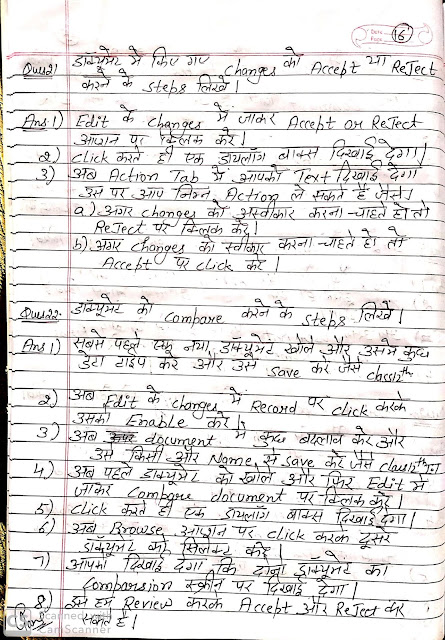 Date
Page 16
Ques 21 डॉक्यूमेंट में किए गए changes को Accept या Reject
करने के steps लिखें।
Ans 1) Edit के changes में जाकर Accept or Reject
आप्शन पर क्लिक करें।
2) click करते ही एक डायलॉग बाक्स दिखाई देगा।
3) अब Action Tab में आपको Text दिखाई देगा
उस पर आप निम्न Action ले सकते हैं जैसे।
a) अगर changes को अस्वीकार करना चाहते हो तो
Reject पर क्लिक करें।
b) अगर changes को स्वीकार करना चाहते हो तो
Accept पर click करें।
Ques 22- डॉक्यूमेंट को compare करने के steps लिखें।
Ans 1) सबसे पहले एक नया डॉक्यूमेंट खोलें और उसमें कुछ
डेटा टाइप करें और उसे save करें जैसे class 12th
2) अब Edit के changes में Record पर click करके
उसका Enable करें।
3) अब document में कुछ बदलाव करें और
उसे किसी और Name से save करें जैसे class 12th
4) अब पहले डॉक्यूमेंट को खोलें और फिर Edit में
जाकर Compare document पर क्लिक करें।
5) click करते ही एक डायलॉग बाक्स दिखाई देगा।
6) अब Browse आप्शन पर click करके दूसरे
डॉक्यूमेंट को सिलेक्ट करें।
7) आपको दिखाई देगा कि दोनो डॉक्यूमेंट का
Comparsion स्क्रीन पर दिखाई देगा।
8) इसे हम Review करके Accept और Reject कर
सकते हैं।
Scanned with
CamScanner